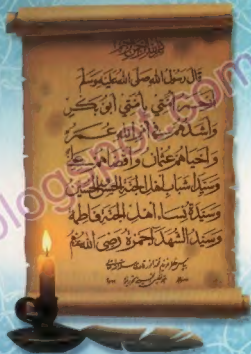 قال رسول الله صلى الله عليه وسلم
ارحم امتي بأمتي أبو بكر
وأشدهم في أمر الله عمر
وأحياهم عثمان وأقضاهم علي
وسيدا شباب أهل الجنة الحسن والحسين
وسيدة نساء أهل الجنة فاطمة
وسيد الشهداء حمزة رضي الله عنهم
blogspot.com